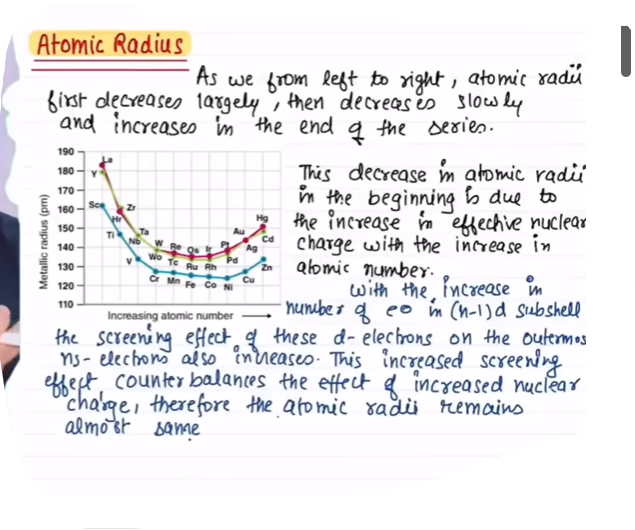 Atomic Radius
As we from left to right, atomic radii
first decreases largely, then decreases slowly
and increases in the end of the series.
190
180
170
160
150
140
130
120
110
Metallic radius (pm)
La
Y
Sc
Zr
Hr
Ti
Ta
Nb
V
W
Wo
Cr
Re
Tc
Mn
Os
Ru
Fe
Ir
Rh
Co
Pt
Pd
Ni
Au
Ag
Cu
Hg
Cd
Zn
Increasing atomic number
This decrease in atomic radii
in the beginning is due to
the increase in effective nuclear
charge with the increase in
atomic number.
with the increase in
number of e⊖ in (n-1)d subshell
the screening effect of these d-electrons on the outermos
ns-electrons also increases. This increased screening
effect counterbalances the effect of increased nuclear
charge, therefore the atomic radii remains
almost same